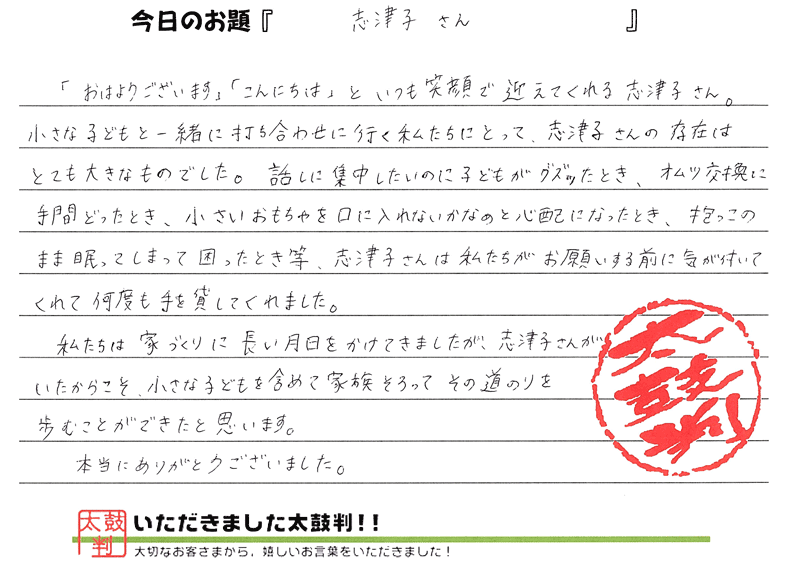 今日のお題『 志津子 さん 』
「おはようございます」「こんにちは」と いつも 笑顔で 迎えてくれる 志津子さん。
小さな子どもと一緒に打ち合わせに行く私たちにとって、志津子さんの存在は
とても大きなものでした。 話しに集中したいのに子どもがグズッたとき、オムツ交換に
手間どったとき、小さいおもちゃを口に入れないかなぁと心配になったとき、抱っこの
まま眠ってしまって困ったとき等、志津子さんは私たちがお願いする前に気が付いて
くれて何度も手を貸してくれました。
私たちは家づくりに長い月日をかけてきましたが、志津子さんが
いたからこそ、小さな子どもを含めて家族そろってその道のりを
歩むことができたと思います。
本当にありがとうございました。
太鼓判
太鼓判
いただきました太鼓判!!
大切なお客さまから，嬉しいお言葉をいただきました！